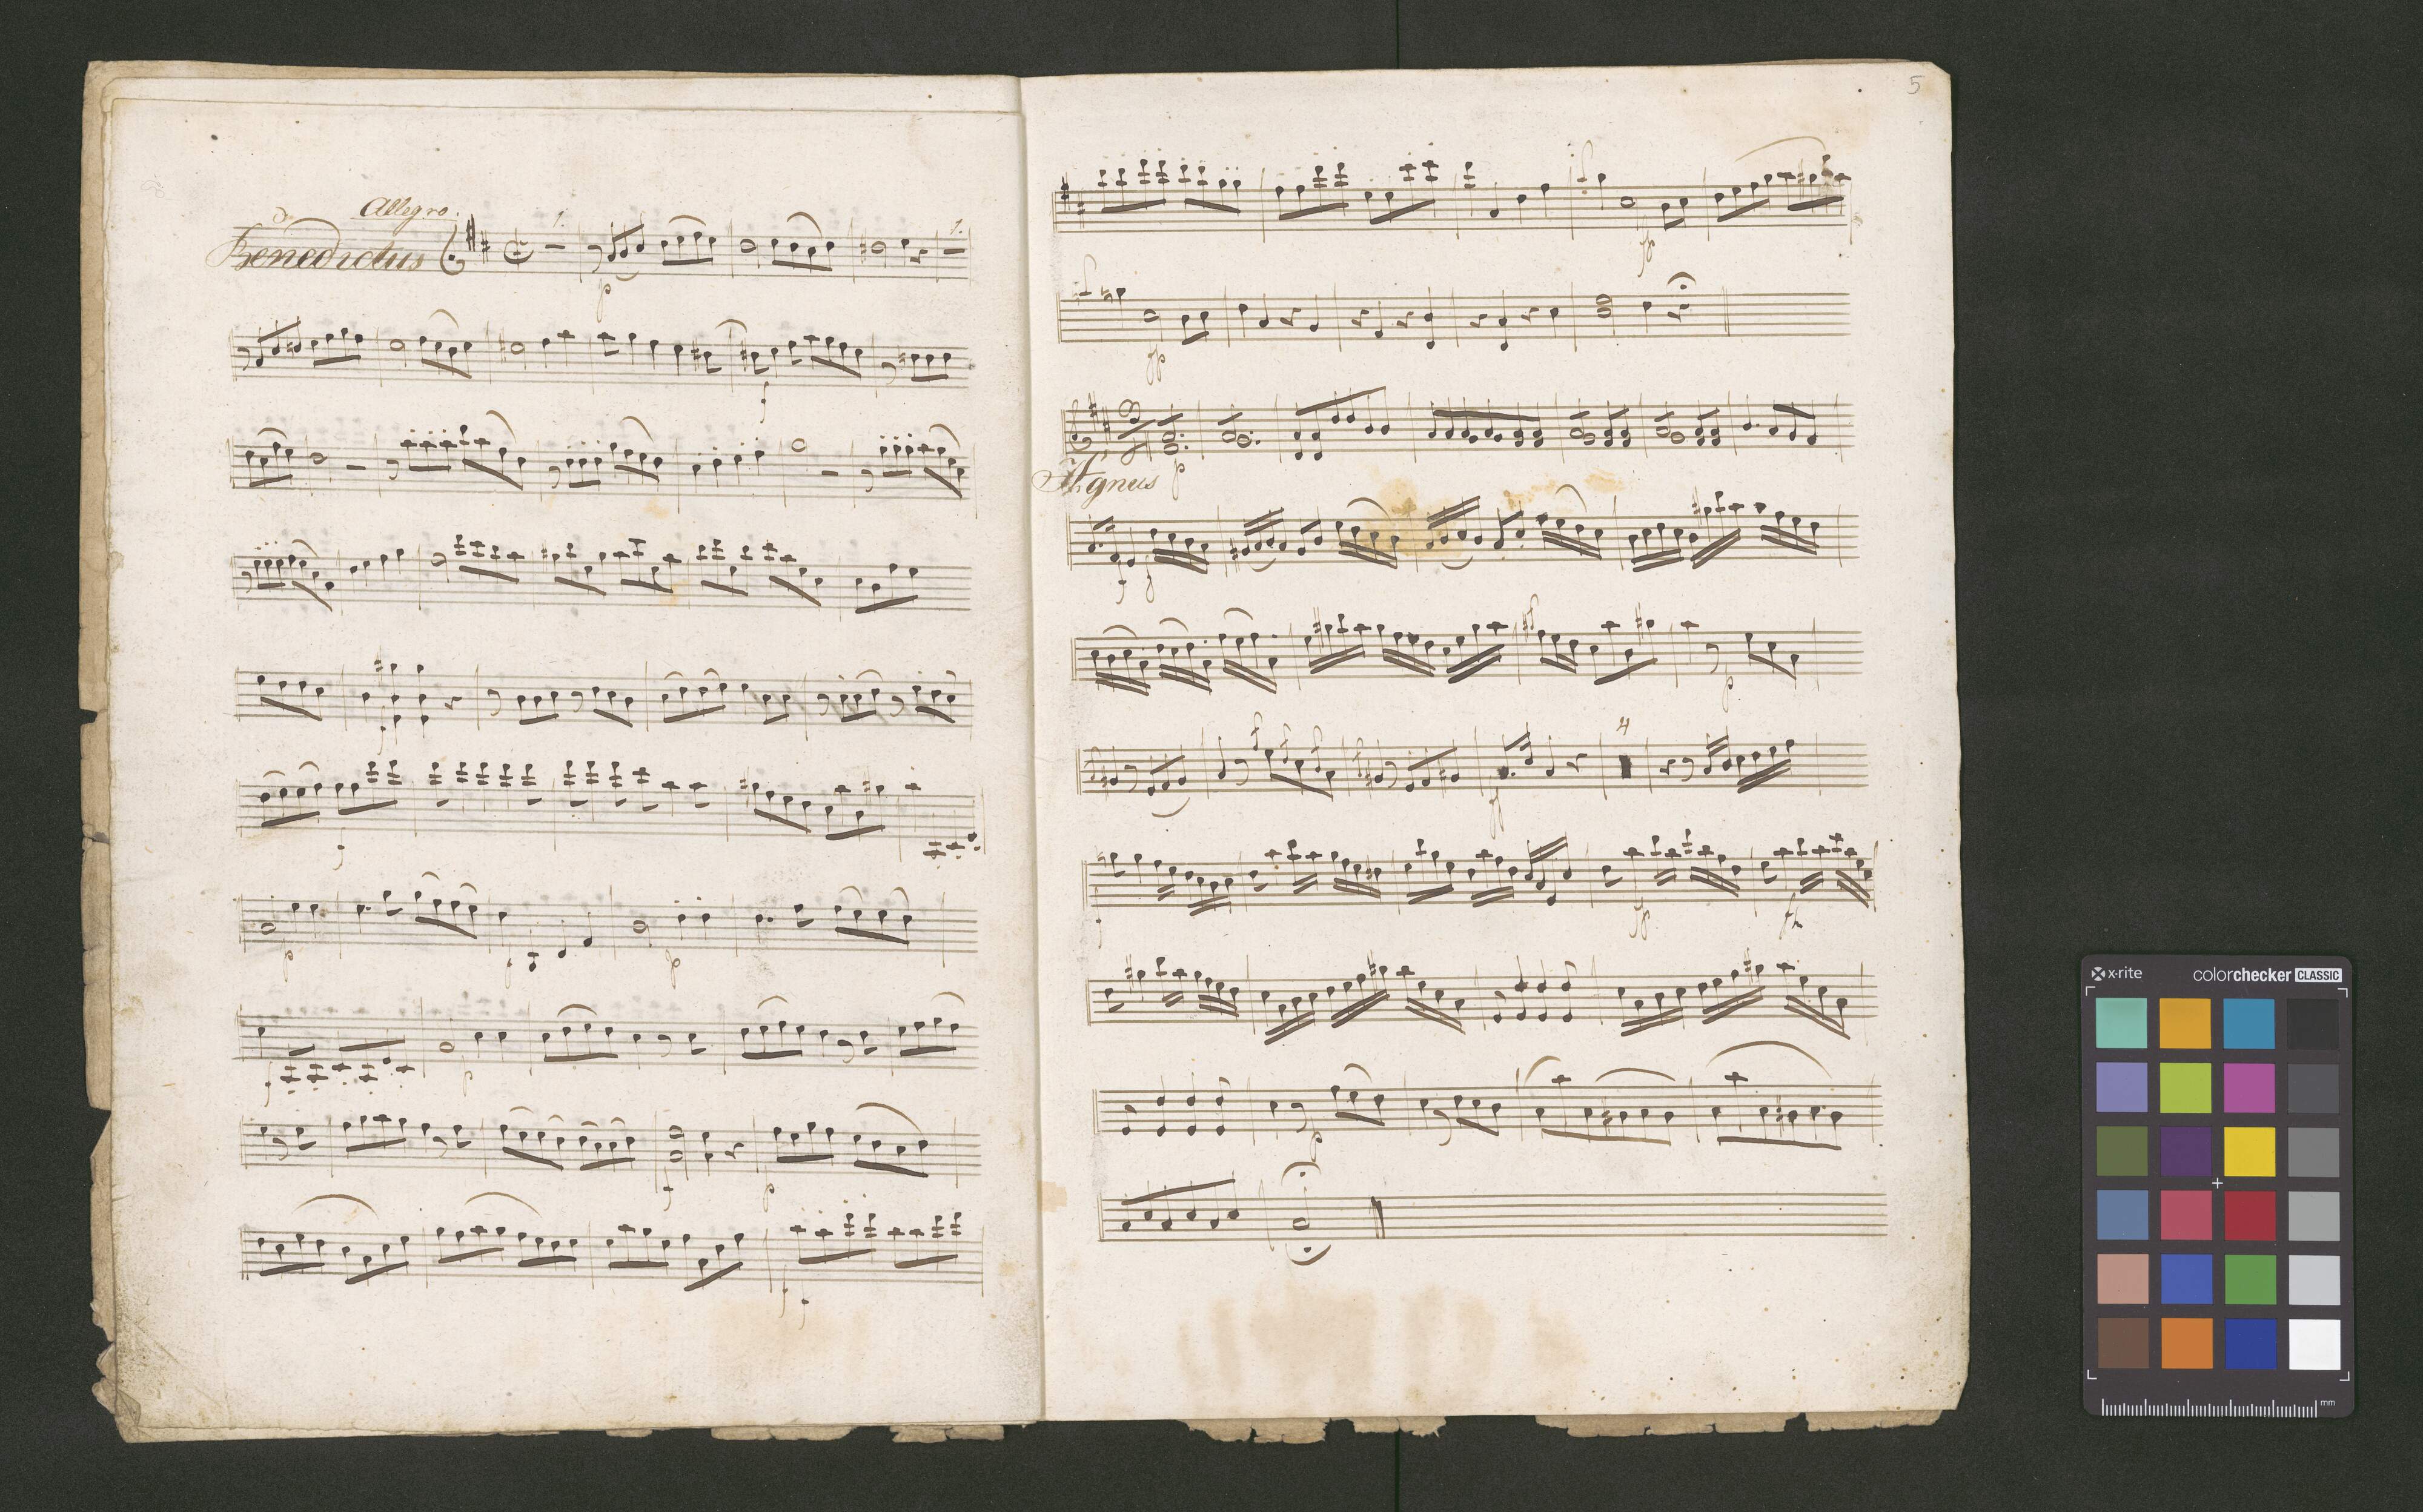 Allegro.
Benedictus
1.
1.
p
f
f
f
p
f
p
f
p
f
p
f
5
fp
fp
p
Agnus
f
p
4
f
fp
p
x-rite
colorchecker CLASSIC
mm